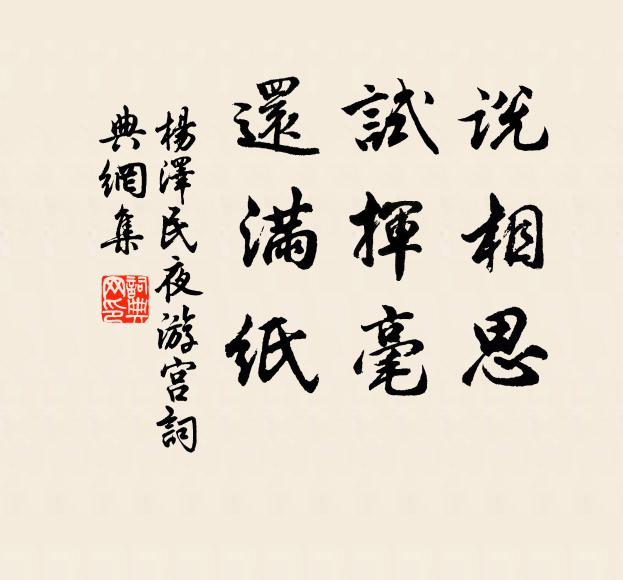 说相思
試揮毫
還滿紙
楊澤民夜游宫詞
典網集
詞典
网印